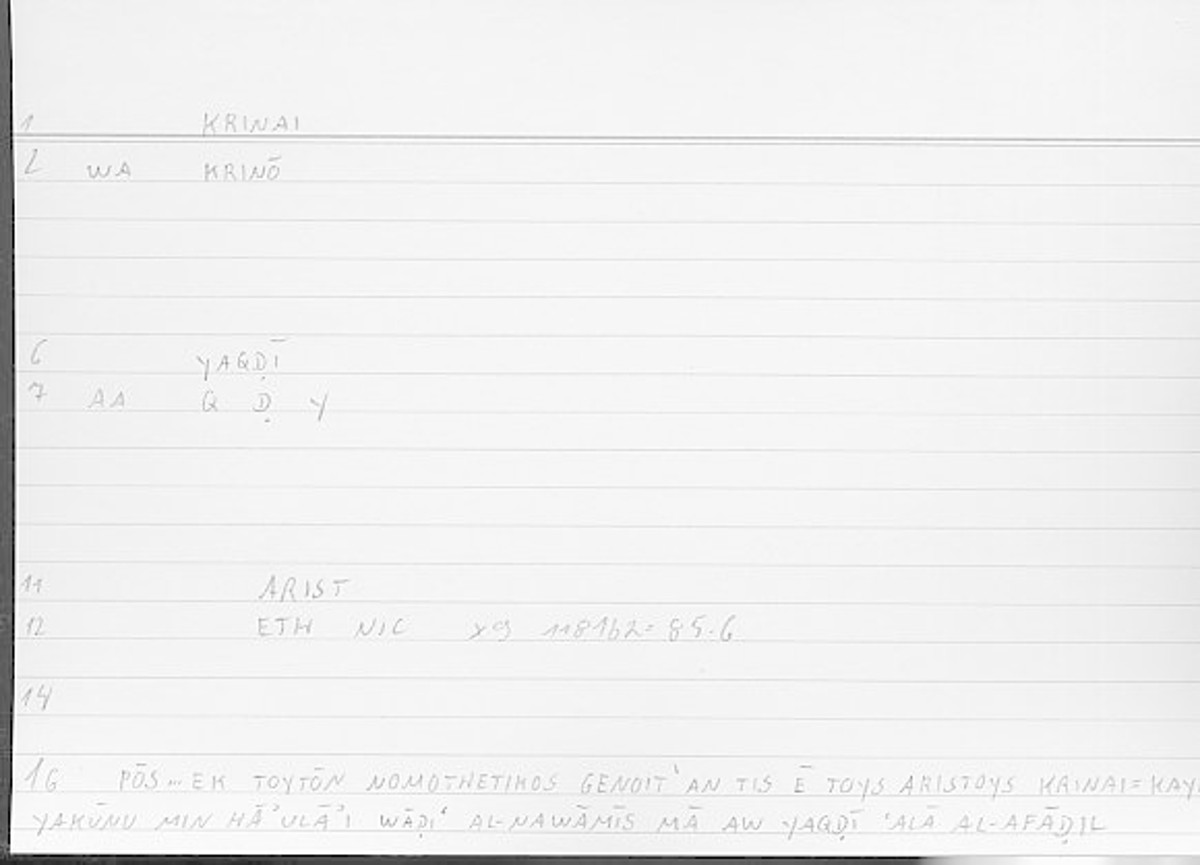 1 KRINAI
2 WA KRINŌ
6 YAQḌĪ
7 AA Q Ḍ Y
11 ARIST
12 ETH NIC 1181b2= 85.6
14
16 PŌS... EK TOYTŌN NOMOTHETIKOS GENOIT' AN TIS Ē TOYS ARISTOYS KRINAI= KAY
YAKŪNU MIN HĀʾULĀʾI WĀḌIʿ AL-NAWĀMĪS MĀ AW YAQḌĪ ʿALĀ AL-AFĀḌIL